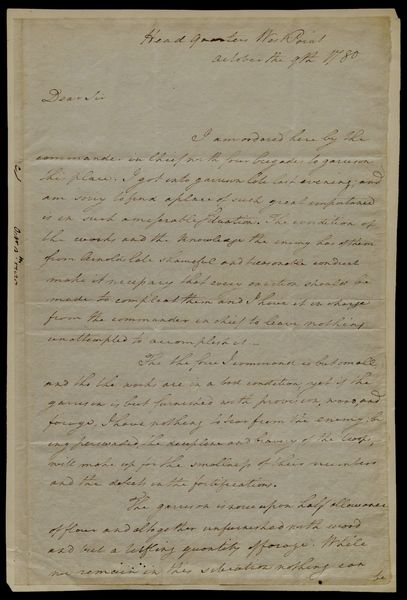 Head Quarters West Point
october the 9th 1780
Dear Sir
I am ordared here by the
commander in chief with four brigades to garison
this place. I got into garison late last evening; and
am sorry to find a place of such great importance
is in such a miserable situation. The condition of
the works and the knowledge the enemy has of them
from Arnold late shameful and treasonable conduct
make it necessary that every exertion should be
made to compleat them and I have it in charge
from the commander in chief to leave nothing
unattempted to accomplish it.
Tho the force I command is but small
and tho the work are in a bad condition, yet if the
garison is but furnished with provision, wood, and
forage, I have nothing to fear from the enemy; be
ing perswaded, the discipline and bravery of the troops,
will make up for the smallness of their numbers
and the defects in the fortifications.
The garison is now upon half allowance
of flour and altogether unfurnished with wood
and but a trifling quantity of forage. While
we remain in this situation nothing can
be